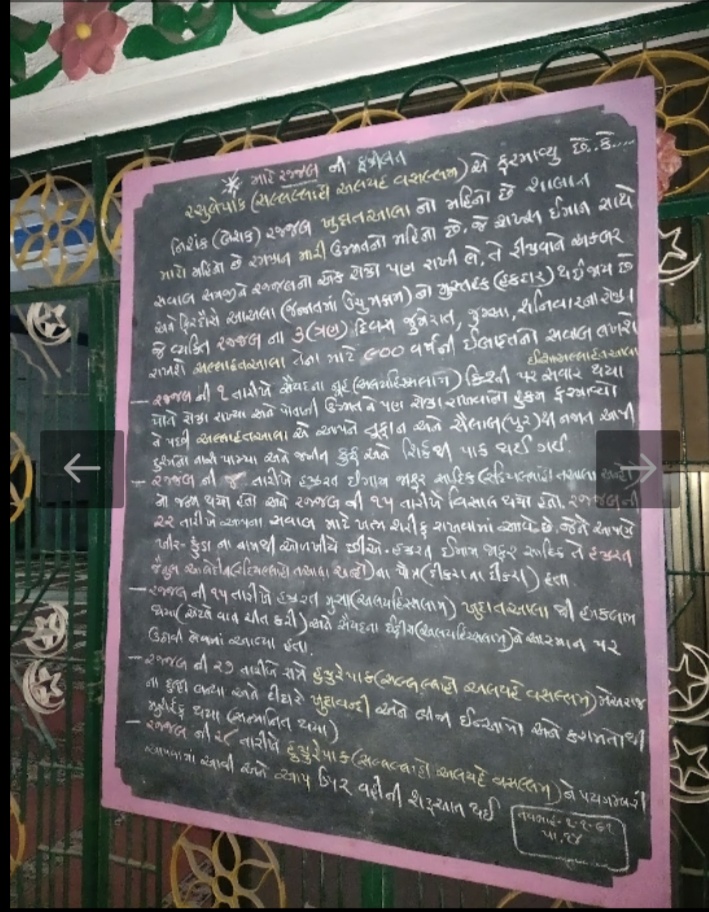 * માહે રજ્જબ ની ફઝીલત
રસુલેપાક (સલ્લલ્લાહો અલયહે વસલ્લમ) એ ફરમાવ્યુ છે. કે.....
નિશંક (બેશક) રજ્જબ ખુદાતઆલા નો મહિનો છે શાબાન
મારો મહિનો છે રમઝાન મારી ઉમ્મતનો મહિનો છે. જે શખ્સ ઈમાન સાથે
સવાબ સમજીને રજ્જબનો એક રોઝો પણ રાખી લે, તે રીઝવાને અકબર
અને ફિરદૌસે આઅલા (જન્નતમાં ઉંચુ મકામ) નો મુસ્તહક (હકદાર) થઈ જાય છે
જે વ્યક્તિ રજ્જબ ના 3 (ત્રણ) દિવસ જુમેરાત, જુમ્આ, શનિવારના રોઝા
રાખશે અલ્લાહતઆલા તેના માટે ૯૦૦ વર્ષની ઈબાદતનો સવાબ લખશે
ઈન્શાઅલ્લાહતઆલા
– રજ્જબ ની ૧ તારીખે સૈયદના નૂહ (અલયહિસ્સલામ) કિશ્તી પર સવાર થયા
પોતે રોઝા રાખ્યા અને પોતાની ઉમ્મત ને પણ રોઝા રાખવાનો હુકમ ફરમાવ્યો
તે પછી અલ્લાહતઆલા એ આપને તૂફાન અને સૈલાબ (પુર) થી નજાત આપી
દુશ્મનો નાશ પામ્યા અને જમીન કુફ્ર અને શિર્ક થી પાક થઈ ગઈ.
– રજ્જબ ની તારીખે હઝરત ઈમામ જાફર સાદિક (રદિયલ્લાહો તઆલા અન્હો)
નો જન્મ થયો હતો અને રજ્જબ ની ૧૫ તારીખે વિસાલ થયો હતો. રજ્જબ ની
૨૨ તારીખે આપના સવાબ માટે ખત્મ શરીફ રાખવામાં આવે છે. જેને આપણે
ખીર-કુંડા ના નામથી ઓળખીયે છીએ. હઝરત ઈમામ જાફર સાદિક તે હઝરત
જૈનુલ આબેદીન (રદિયલ્લાહો તઆલા અન્હો) ના પૌત્ર (દીકરાના દીકરા) હતા
– રજ્જબ ની ૧૫ તારીખે હઝરત મુસા (અલયહિસ્સલામ) ખુદાતઆલા થી હમકલામ
થયા (એટલે વાત ચીત કરી) અને સૈયદના ઈદ્રીસ (અલયહિસ્સલામ) ને આસમાન પર
ઉઠાવી લેવામાં આવ્યા હતા.
– રજ્જબ ની ૨૭ તારીખે રાત્રે હુઝુરેપાક (સલ્લલ્લાહો અલયહે વસલ્લમ) મેઅરાજ
ના દુલ્હા બન્યા અને દીદારે ખુદાવન્દી અને બીજા ઈન્આમો અને કરામતો થી
મુશર્રફ થયા (સન્માનિત થયા)
– રજ્જબ ની ૨૮ તારીખે હુઝુરેપાક (સલ્લલ્લાહો અલયહે વસલ્લમ) ને પયગમ્બરી
આપવામાં આવી અને આપ ઉપર વહીની શરૂઆત થઈ